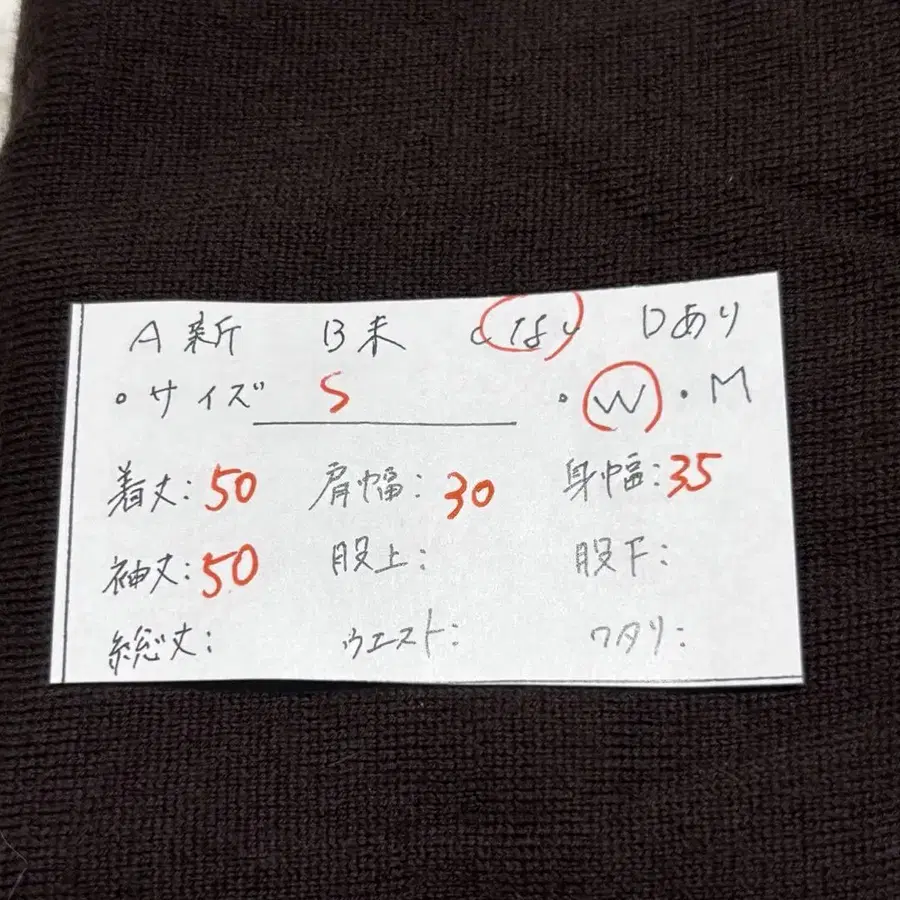 A 新 B未 Cなし Dあり
・サイズ S ・W・M
着丈:50 肩幅:30 身幅:35
袖丈:50 股上: 股下:
総丈: ウエスト: ワタリ: